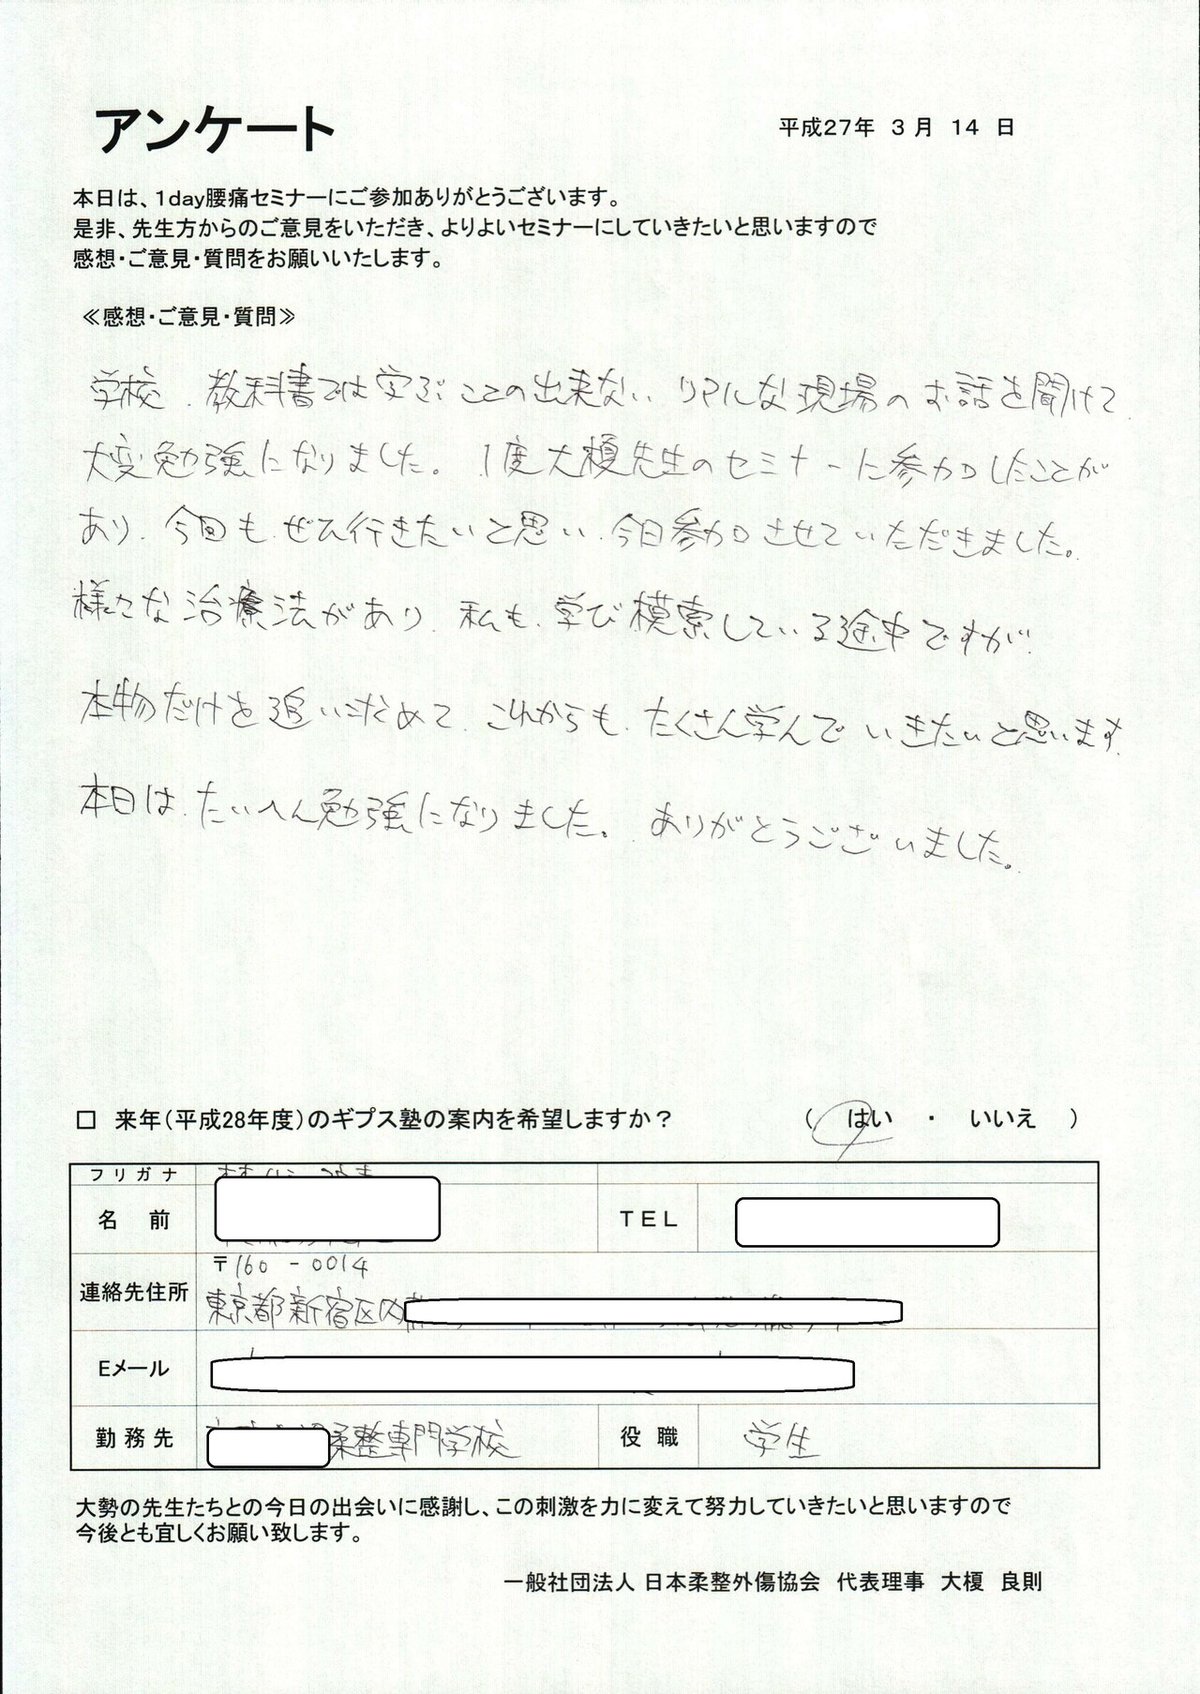 アンケート
平成27年 3月 14 日
本日は、1day腰痛セミナーにご参加ありがとうございます。
是非、先生方からのご意見をいただき、よりよいセミナーにしていきたいと思いますので
感想・ご意見・質問をお願いいたします。
≪感想・ご意見・質問≫
学校、教科書では学ぶことの出来ない、リアルな現場のお話を聞けて、
大変勉強になりました。1度大榎先生のセミナーに参加したことが
あり、今回も、ぜひ行きたいと思い、今日参加させていただきました。
様々な治療法があり、私も、学び模索している途中ですが、
本物だけを追い求めて、これからも、たくさん学んでいきたいと思います。
本日は、たいへん勉強になりました。ありがとうございました。
□ 来年(平成28年度)のギプス塾の案内を希望しますか? ( はい ・ いいえ )
フリガナ
名 前 TEL
連絡先住所 〒160 - 0014
東京都新宿区内
Eメール
勤務先 柔整専門学校 役職 学生
大勢の先生たちとの今日の出会いに感謝し、この刺激を力に変えて努力していきたいと思いますので
今後とも宜しくお願い致します。
一般社団法人 日本柔整外傷協会 代表理事 大榎 良則